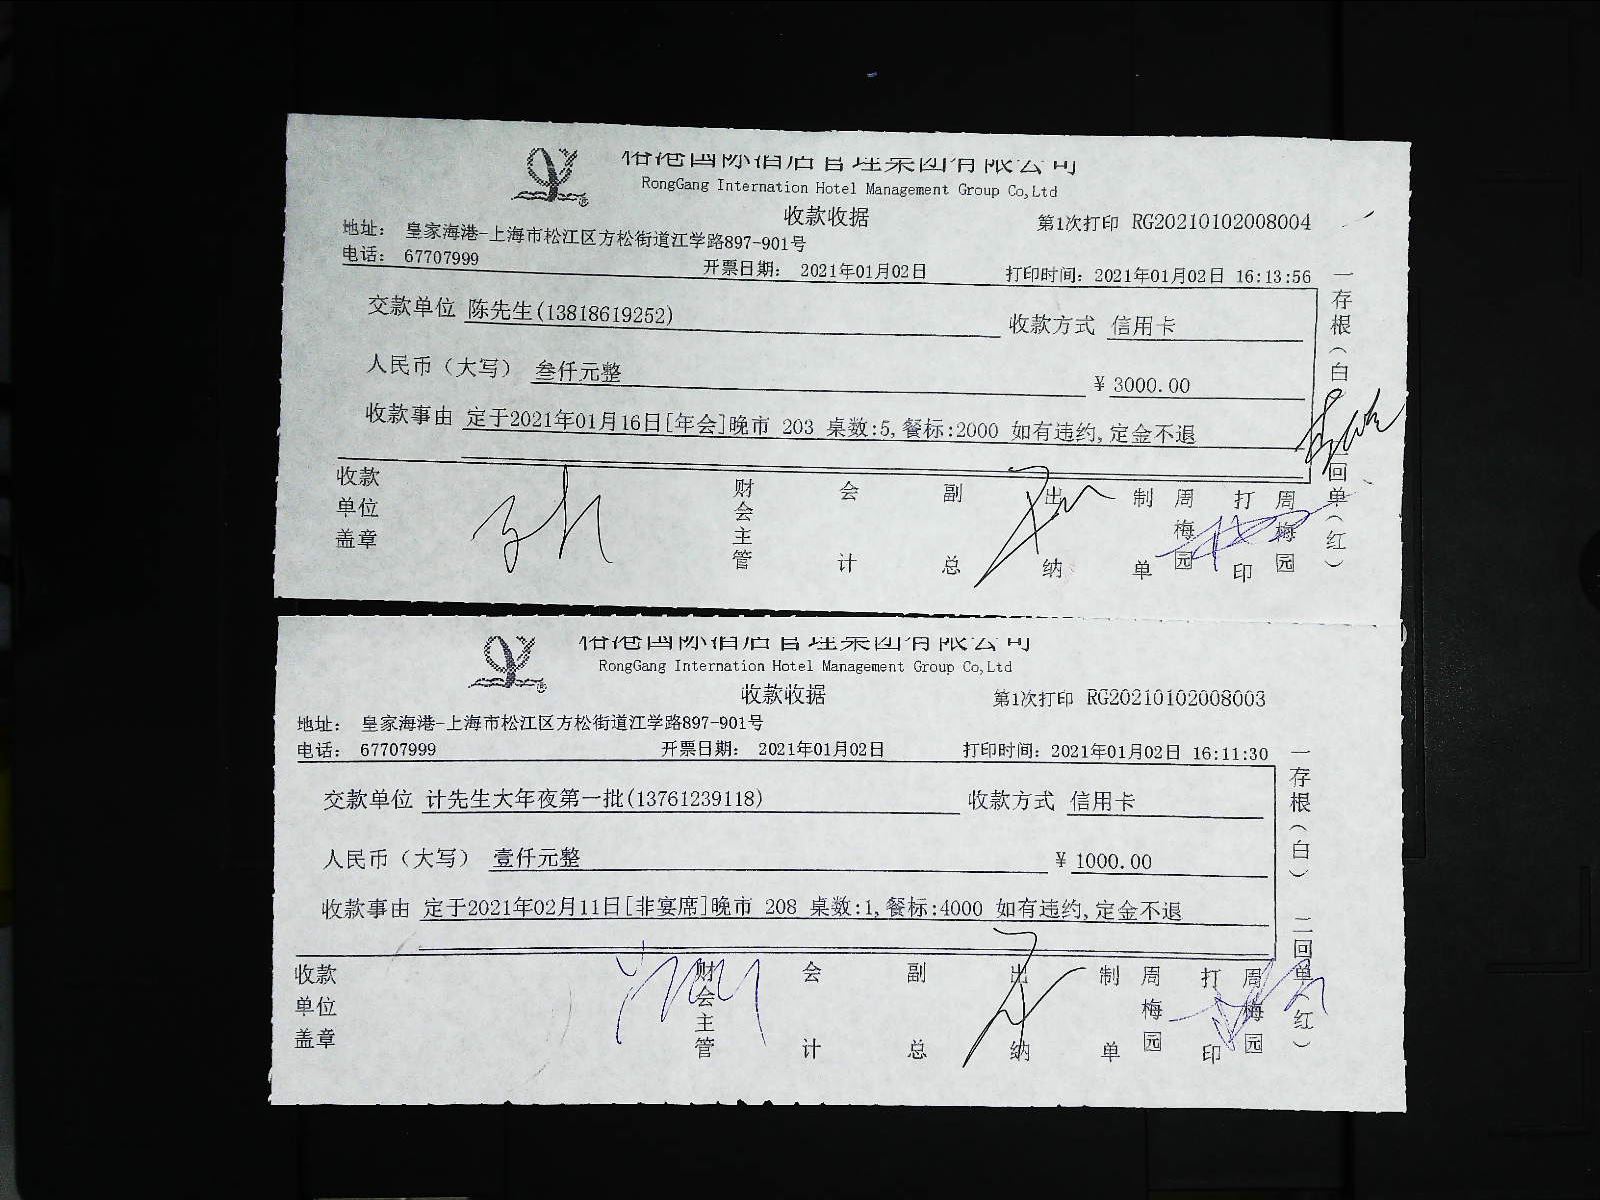 裕港国际酒店管理集团有限公司
RongGang Internation Hotel Management Group Co,Ltd
收款收据
第1次打印 RG20210102008004
地址： 皇家海港-上海市松江区方松街道江学路897-901号
电话： 67707999 开票日期： 2021年01月02日 打印时间：2021年01月02日 16:13:56
交款单位 陈先生(13818619252) 收款方式 信用卡
人民币（大写） 叁仟元整 ¥ 3000.00
收款事由 定于2021年01月16日[年会]晚市 203 桌数:5,餐标:2000 如有违约,定金不退
收款单位盖章 财会主管 会计 副总 出纳 制单 周梅园 打印 周梅园
一存根（白） 二回单（红）
裕港国际酒店管理集团有限公司
RongGang Internation Hotel Management Group Co,Ltd
收款收据
第1次打印 RG20210102008003
地址： 皇家海港-上海市松江区方松街道江学路897-901号
电话： 67707999 开票日期： 2021年01月02日 打印时间：2021年01月02日 16:11:30
交款单位 计先生大年夜第一批(13761239118) 收款方式 信用卡
人民币（大写） 壹仟元整 ¥ 1000.00
收款事由 定于2021年02月11日[非宴席]晚市 208 桌数:1,餐标:4000 如有违约,定金不退
收款单位盖章 财会主管 会计 副总 出纳 制单 周梅园 打印 周梅园
一存根（白） 二回单（红）